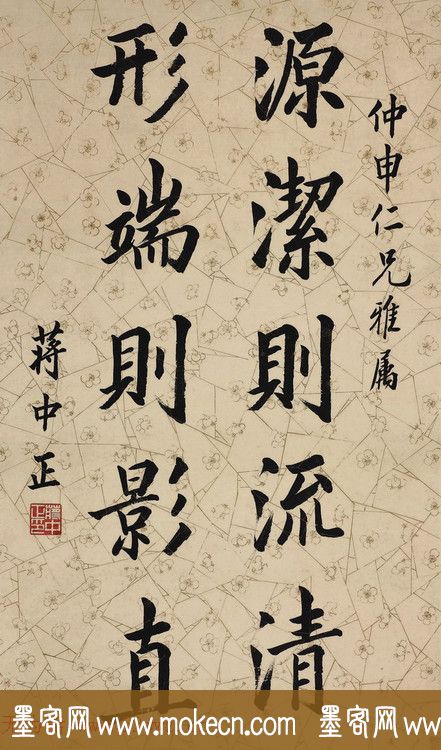 仲申仁兄雅属
源潔則流清
形端則影直
蔣中正
蔣中正印
墨客网 www.mokecn.com 墨客网